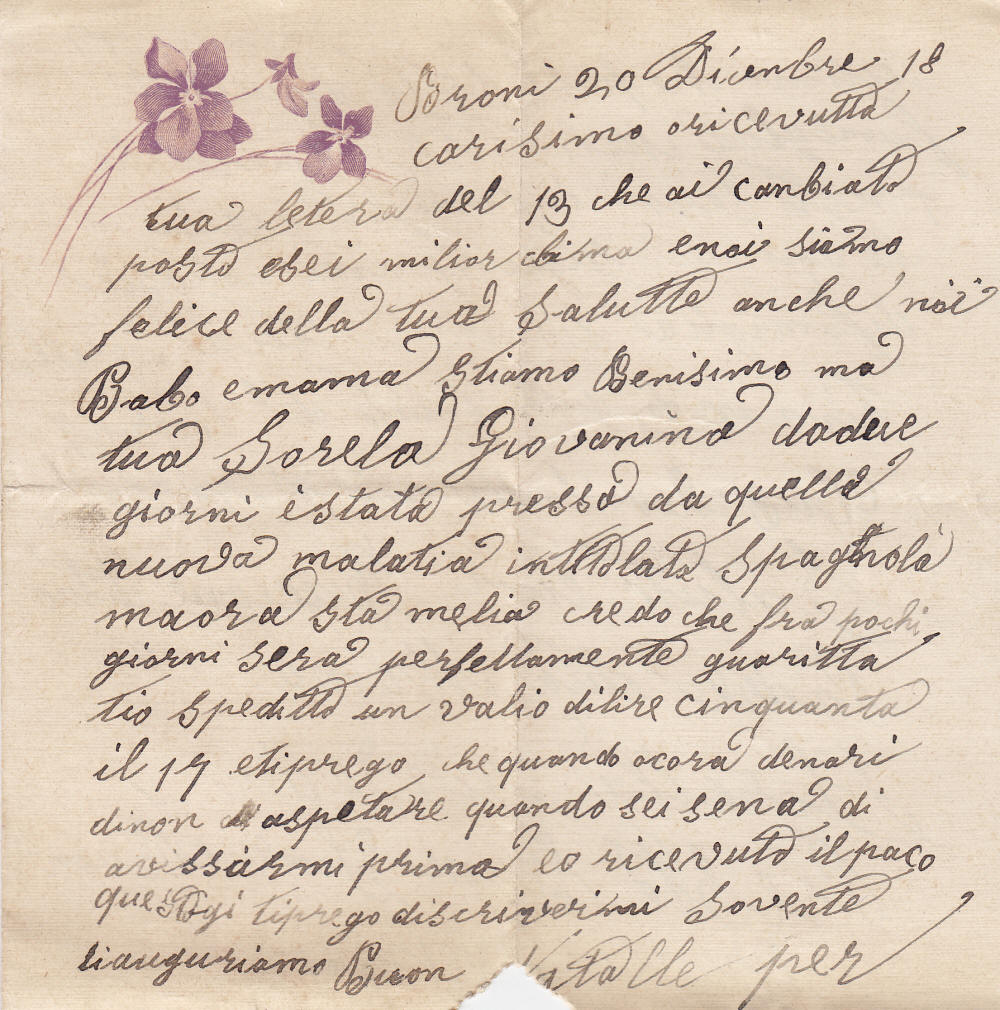 Broni 20 Dicenbre 18
carisimo oricevutta
tua letera del 13 che ai canbiato
posto esei milior clima enoi siamo
felice della tua Salutte anche noi
Babo emama stiamo Benisimo ma
tua Sorela Giovanina dadue
giorni è stata pressa da quella
nuova malatia intitolata Spagnola
maora sta melia credo che fra pochi
giorni sera perfettamente guaritta
tio speditto un valio dilire cinquanta
il 17 etiprego che quando ocora denari
dinon aspetare quando sei sena di
avissarmi prima eo ricevuto il paco
quest Ogi tiprego discriverini Sovente
tiauguriamo Buon Natalle per